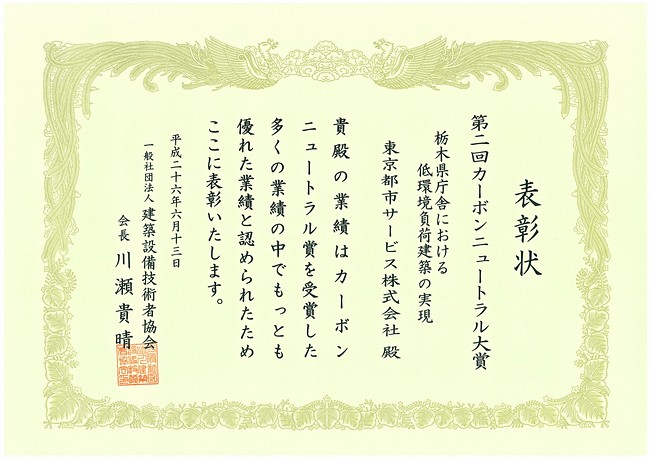 表彰状
第二回カーボンニュートラル大賞
栃木県庁舎における
低環境負荷建築の実現
東京都市サービス株式会社 殿
貴殿の業績はカーボン
ニュートラル賞を受賞した
多くの業績の中でもっとも
優れた業績と認められたため
ここに表彰いたします。
平成二十六年六月十三日
一般社団法人 建築設備技術者協会
会長 川瀬貴晴